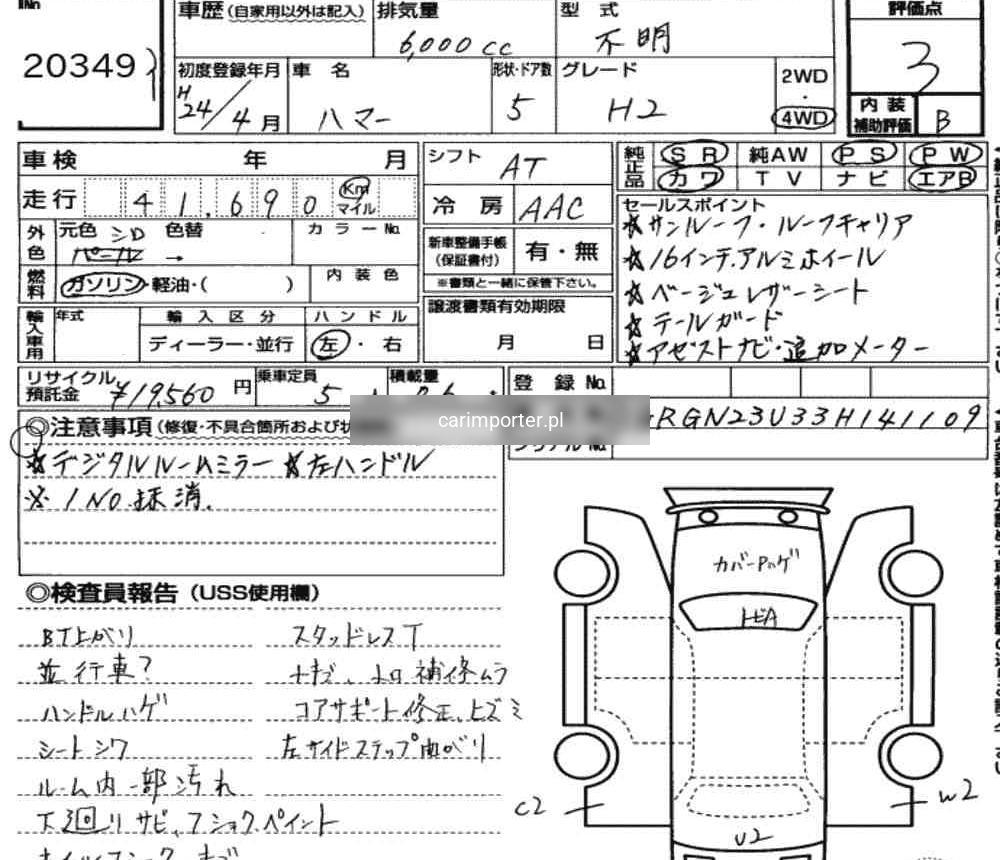 No
20349
車歴 (自家用以外は記入) 排気量 型式 評価点
6,000cc 不明 3
初度登録年月 車名 形状・ドア数 グレード 2WD
H24/4月 ハマー 5 H2 ・
4WD
内装補助評価 B
車検 年 月
シフト AT
純正品 SR 純AW PS PW
カワ TV ナビ エアB
走行 41,690 Km マイル
冷房 AAC
セールスポイント
☆サンルーフ・ルーフキャリア
☆16インチ.アルミホイール
☆ベージュレザーシート
☆テールガード
☆アゼストナビ・追加メーター
外色 元色 シロ 色替 カラーNo.
パール →
新車整備手帳 (保証書付) 有・無
※書類と一緒に保管下さい。
燃料 ガソリン・軽油・( ) 内装色
譲渡書類有効期限
月 日
輸入車用 年式 輸入区分 ハンドル
ディーラー・並行 左・右
リサイクル預託金 ¥19,560円 乗車定員 5 積載量
登録No.
carimporter.pl
RGN23U33H141109
シリアルNo.
◎注意事項 (修復・不具合箇所および
☆デジタルルームミラー ☆左ハンドル
※1NO.抹消.
◎検査員報告 (USS使用欄)
BT上がり スタッドレスT
並行車? 補修ムラ
ハンドルハゲ コアサポート修正、ヒズミ
シートシワ 左サイドステップ曲がり
ルーム内一部汚れ
下廻りサビ、フショク、ペイント
カバーPハゲ
トビA
C2
W2
U2